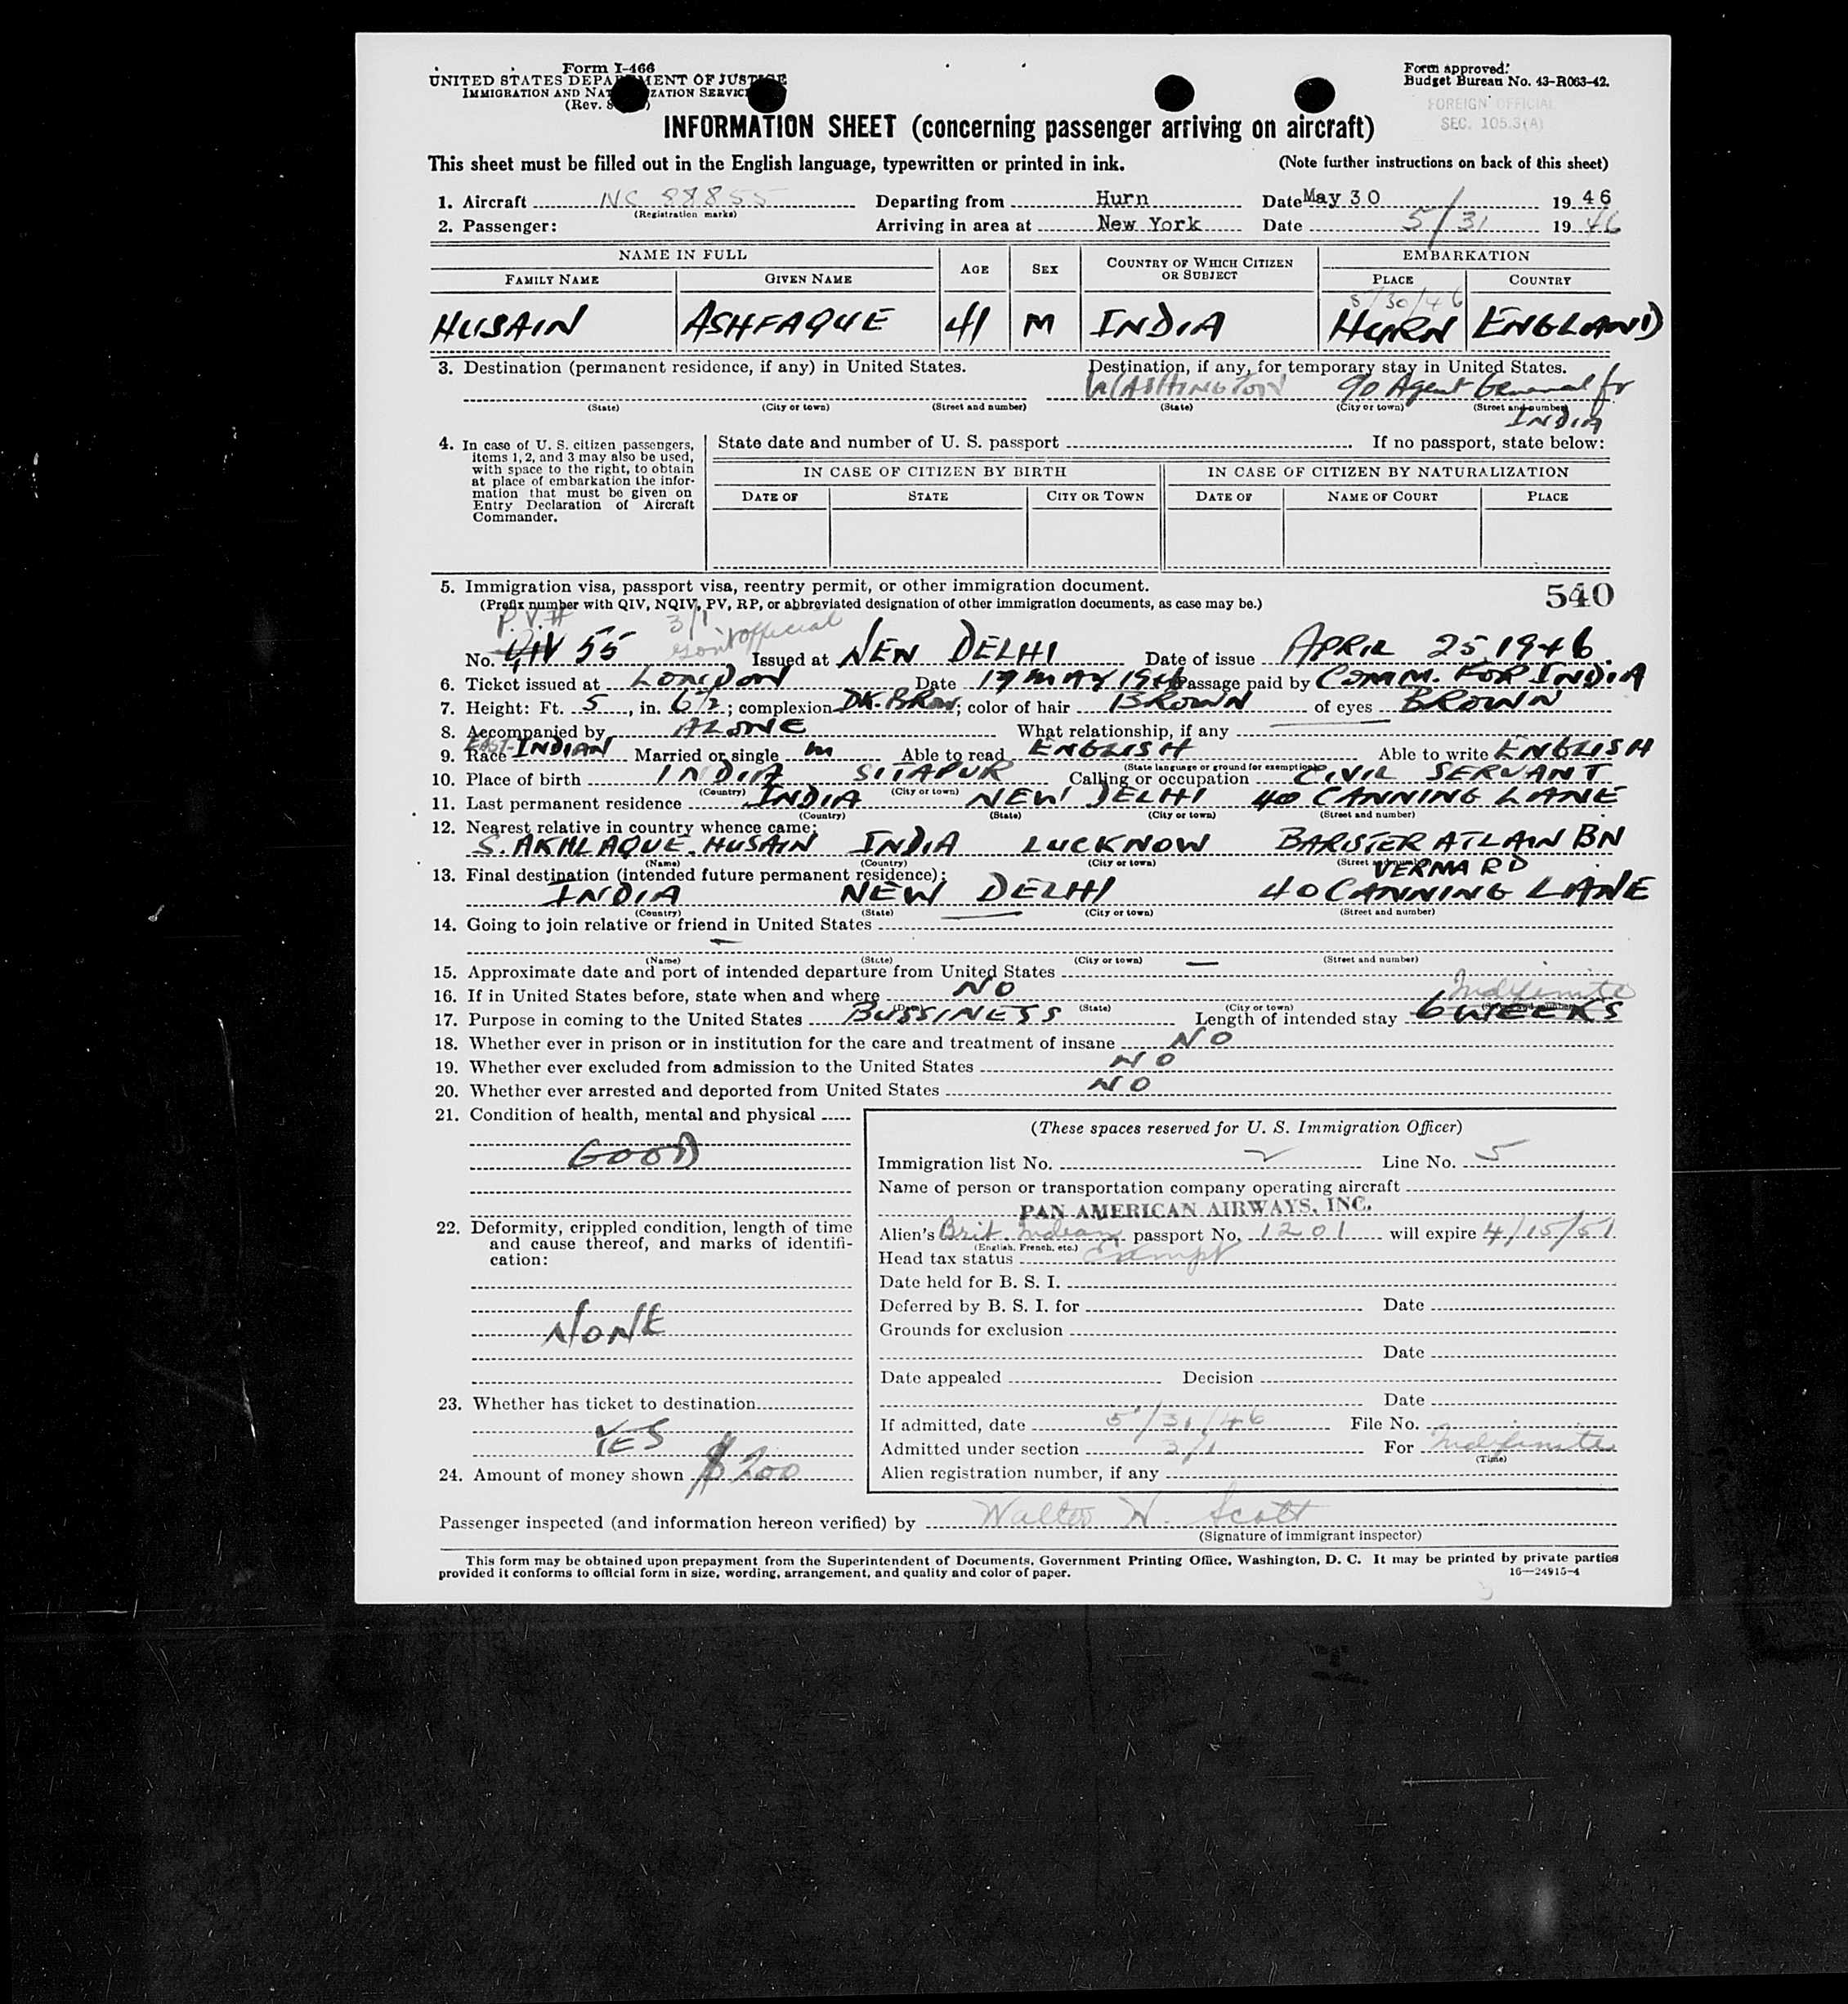 Form I-466
UNITED STATES DEPARTMENT OF JUSTICE
IMMIGRATION AND NATURALIZATION SERVICE
(Rev.
Form approved.
Budget Bureau No. 43-R063-42.
FOREIGN OFFICIAL
SEC. 105.3(A)
INFORMATION SHEET (concerning passenger arriving on aircraft)
This sheet must be filled out in the English language, typewritten or printed in ink. (Note further instructions on back of this sheet)
1. Aircraft NC 88855 Departing from Hurn Date May 30 1946
(Registration marks)
2. Passenger: Arriving in area at New York Date 5/31 1946
NAME IN FULL AGE SEX COUNTRY OF WHICH CITIZEN OR SUBJECT EMBARKATION
FAMILY NAME GIVEN NAME PLACE COUNTRY
5/30/46
HUSAIN ASHFAQUE 41 M INDIA HURN ENGLAND
3. Destination (permanent residence, if any) in United States. Destination, if any, for temporary stay in United States.
WASHINGTON c/o Agent General for
(State) (City or town) (Street and number) (State) (City or town) (Street and number)
INDIA
4. In case of U. S. citizen passengers, items 1, 2, and 3 may also be used, with space to the right, to obtain at place of embarkation the information that must be given on Entry Declaration of Aircraft Commander.
State date and number of U. S. passport If no passport, state below:
IN CASE OF CITIZEN BY BIRTH IN CASE OF CITIZEN BY NATURALIZATION
DATE OF STATE CITY OR TOWN DATE OF NAME OF COURT PLACE
5. Immigration visa, passport visa, reentry permit, or other immigration document. 540
(Prefix number with QIV, NQIV, PV, RP, or abbreviated designation of other immigration documents, as case may be.)
P.V. # 3/1 Gov't official
No. QIV 55 Issued at NEW DELHI Date of issue APRIL 25, 1946.
6. Ticket issued at LONDON Date 17 MAY 1946 Passage paid by COMM. FOR INDIA
7. Height: Ft. 5, in. 6 1/2; complexion DK. BROW; color of hair BROWN of eyes BROWN
8. Accompanied by ALONE What relationship, if any
9. Race EAST-INDIAN Married or single M Able to read ENGLISH Able to write ENGLISH
(State language or ground for exemption)
10. Place of birth INDIA SITAPUR Calling or occupation CIVIL SERVANT
(Country) (City or town)
11. Last permanent residence INDIA NEW DELHI 40 CANNING LANE
(Country) (State) (City or town) (Street and number)
12. Nearest relative in country whence came:
S. AKHLAQUE. HUSAIN INDIA LUCKNOW BARISTER ATLAW BN
(Name) (Country) (City or town) (Street and number)
VERMA RD
13. Final destination (intended future permanent residence):
INDIA NEW DELHI 40 CANNING LANE
(Country) (State) (City or town) (Street and number)
14. Going to join relative or friend in United States
(Name) (State) (City or town) (Street and number)
15. Approximate date and port of intended departure from United States
16. If in United States before, state when and where NO Indefinite
(Date) (State) (City or town) (Street and number)
17. Purpose in coming to the United States BUSSINESS Length of intended stay 6 WEEKS
18. Whether ever in prison or in institution for the care and treatment of insane NO
19. Whether ever excluded from admission to the United States NO
20. Whether ever arrested and deported from United States NO
21. Condition of health, mental and physical
GOOD
22. Deformity, crippled condition, length of time and cause thereof, and marks of identification:
NONE
23. Whether has ticket to destination
YES
24. Amount of money shown $ 200
(These spaces reserved for U. S. Immigration Officer)
Immigration list No. 2 Line No. 5
Name of person or transportation company operating aircraft
PAN AMERICAN AIRWAYS, INC.
Alien's Brit. Indian passport No. 1201 will expire 4/15/51
(English, French, etc.)
Head tax status Exempt
Date held for B. S. I.
Deferred by B. S. I. for Date
Grounds for exclusion
Date
Date appealed Decision
Date
If admitted, date 5/31/46 File No.
Admitted under section 3/1 For Indefinite
(Time)
Alien registration number, if any
Passenger inspected (and information hereon verified) by Walter H. Scott
(Signature of immigrant inspector)
This form may be obtained upon prepayment from the Superintendent of Documents, Government Printing Office, Washington, D. C. It may be printed by private parties
provided it conforms to official form in size, wording, arrangement, and quality and color of paper. 16—24915-4